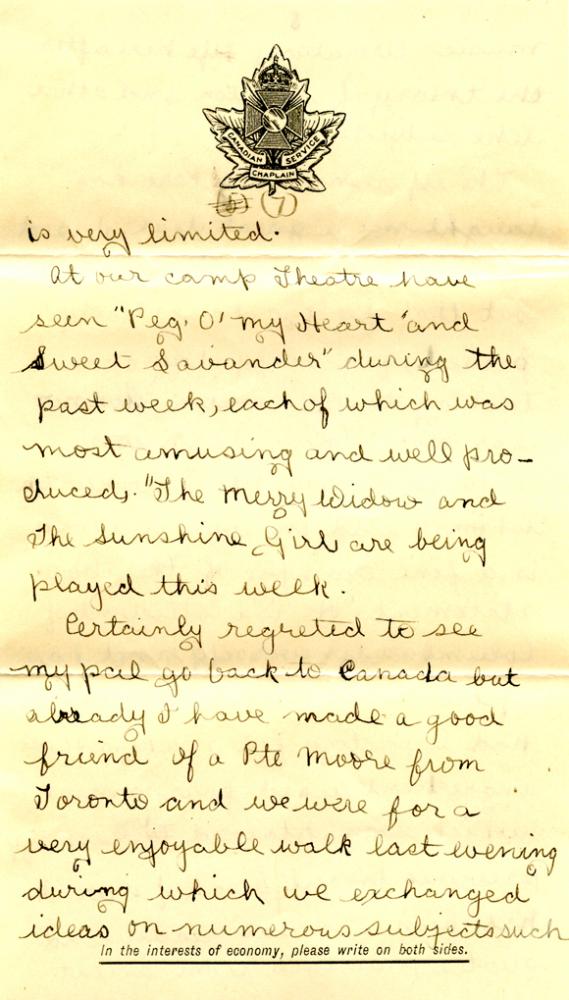 CANADIAN CHAPLAIN SERVICE
(6) (7)
is very limited.
At our camp Theatre have
seen "Peg. O' my Heart" and
Sweet Lavander" during the
past week, each of which was
most amusing and well pro-
duced. "The Merry Widow and
The Sunshine Girl are being
played this week.
Certainly regreted to see
my pal go back to Canada but
already I have made a good
friend of a Pte Moore from
Toronto and we were for a
very enjoyable walk last evening
during which we exchanged
ideas on numerous subjects such
In the interests of economy, please write on both sides.